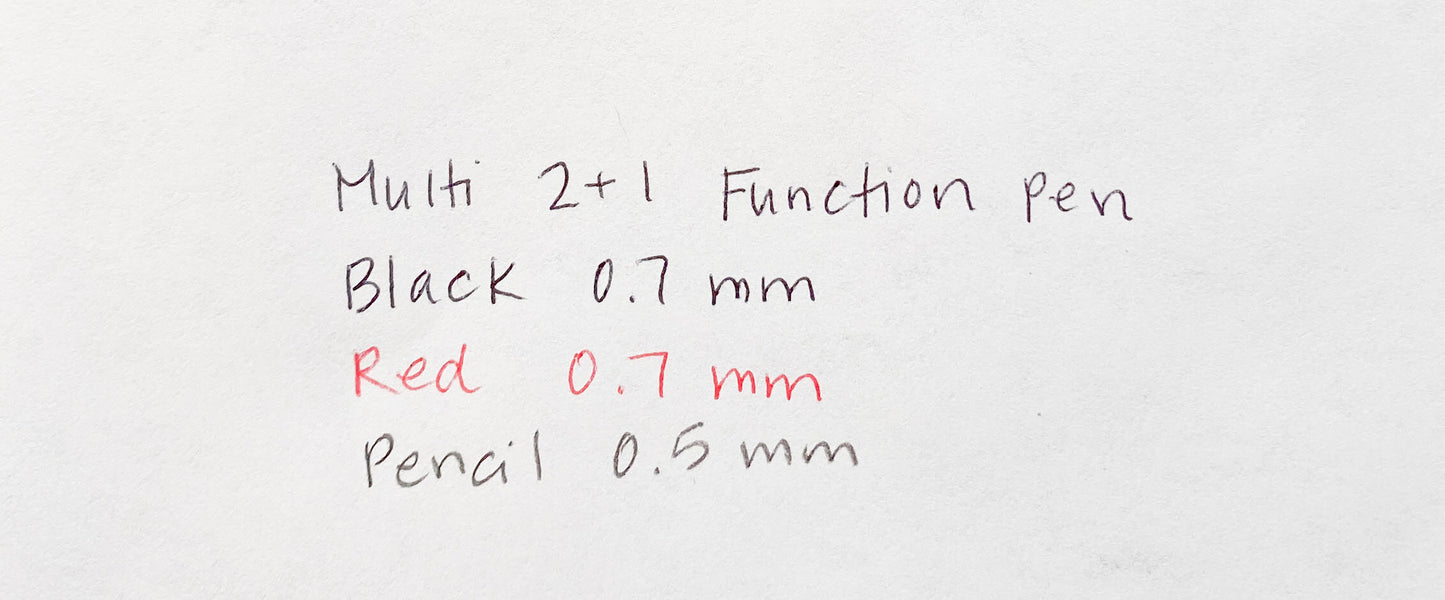 Multi 2+1 Function Pen
Black 0.7 mm
Red 0.7 mm
Pencil 0.5 mm